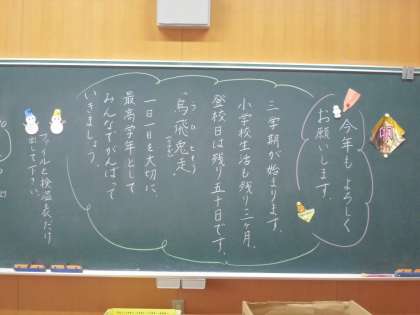 今年もよろしく
お願いします。
三学期が始まります。
小学校生活も残り三ヶ月。
登校日は残り五十日です。
「烏飛兎走」
一日一日を大切に、
最高学年として
みんなでがんばって
いきましょう。
ファイルと検温表だけ
出して下さい。